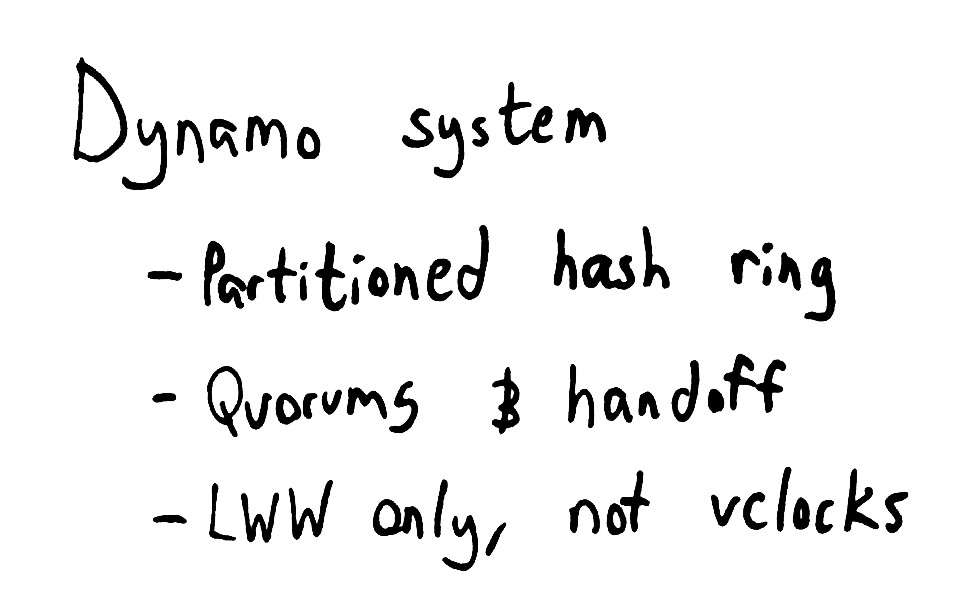 Dynamo system
- Partitioned hash ring
- Quorums & handoff
- LWW only, not vclocks